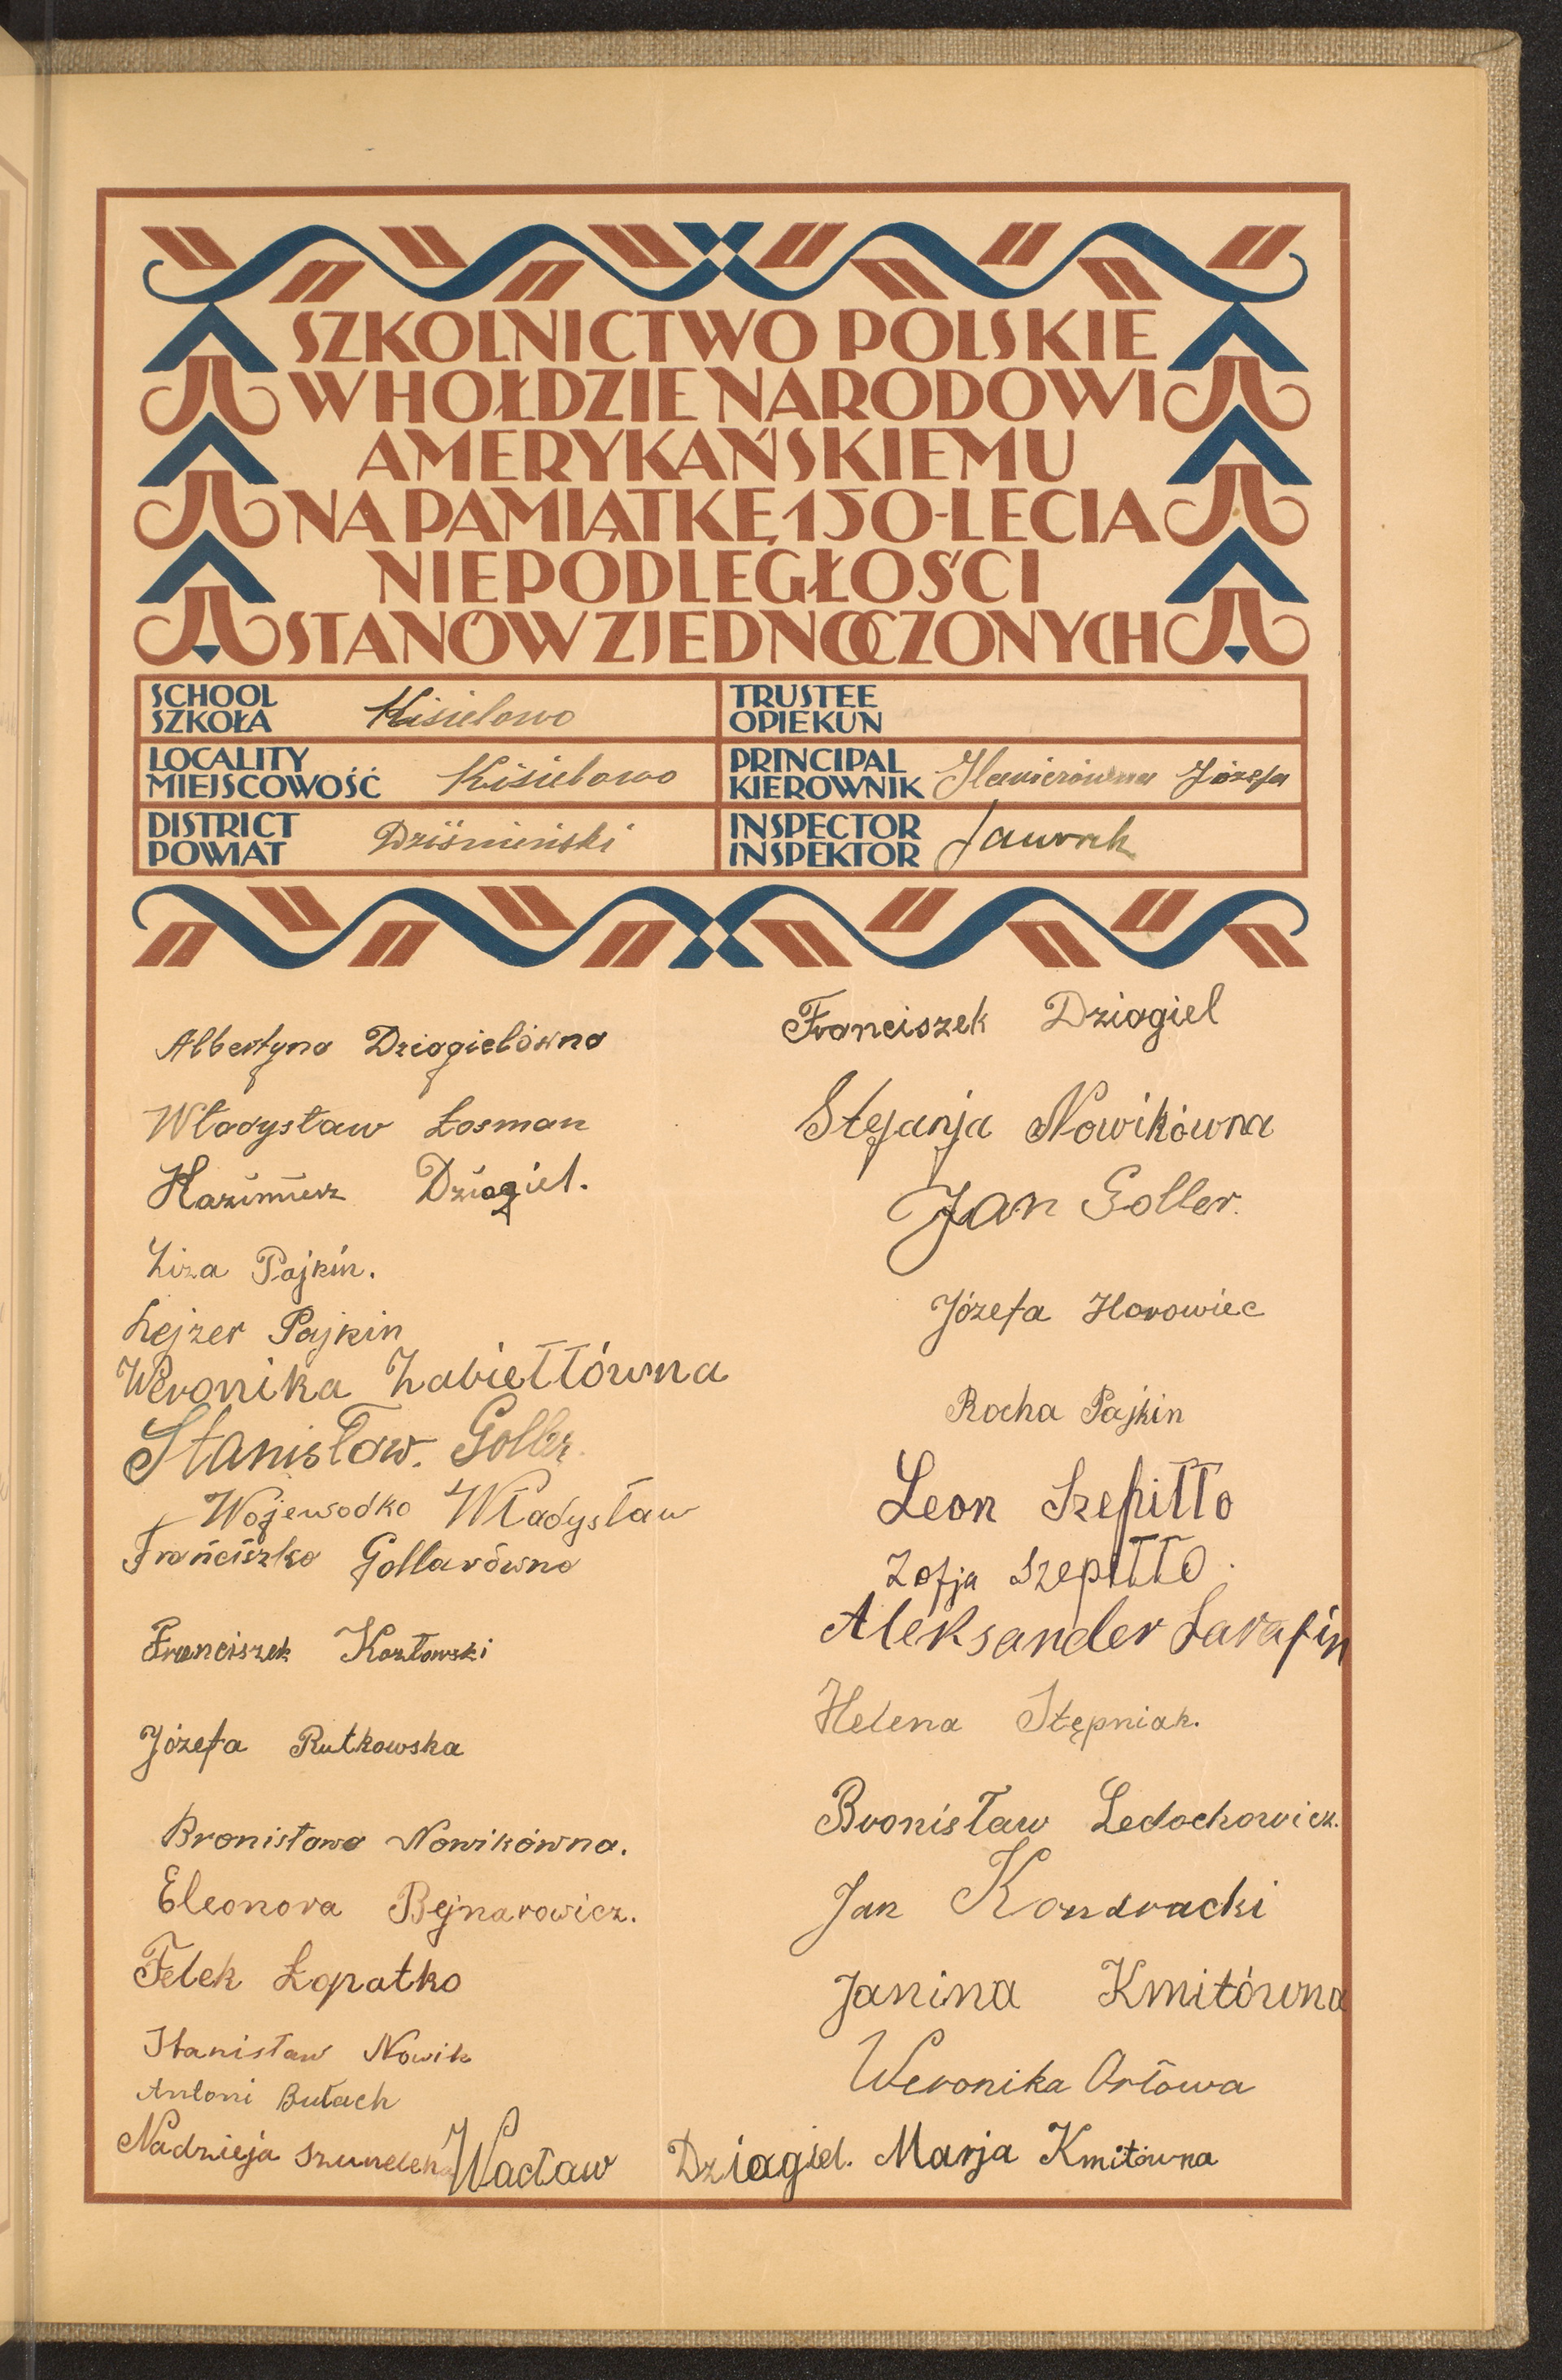 SZKOLNICTWO POLSKIE
W HOŁDZIE NARODOWI
AMERYKAŃSKIEMU
NA PAMIĄTKĘ 150-LECIA
NIEPODLEGŁOŚCI
STANÓW ZJEDNOCZONYCH
SCHOOL
SZKOŁA
Kisielowo
TRUSTEE
OPIEKUN
LOCALITY
MIEJSCOWOŚĆ
Kisielowo
PRINCIPAL
KIEROWNIK
Józefa
DISTRICT
POWIAT
Dziśnieński
INSPECTOR
INSPEKTOR
Albertyna Dziagielówna
Władysław Łosman
Kazimierz Dziagiel.
Liza Pajkin.
Lejzer Pajkin
Weronika Zabiełłówna
Stanisław. Goller
Wojewodko Władysław
Franciszka Gollarówna
Franciszek Kozłowski
Józefa Rutkowska
Bronisława Nowikówna.
Eleonora Bejnarowicz.
Felek Łopatko
Stanisław Nowik
Antoni Bułach
Nadzieja
Wacław Dziagiel.
Franciszek Dziagiel
Stefanja Nowikówna
Jan Goller.
Józefa Horowiec
Rocha Pajkin
Leon Szepiłło
Zofja Szepiłło.
Aleksander Sarafin
Helena Stępniak.
Bronisław Ledochowicz.
Jan Kondracki
Janina Kmitówna
Weronika Orłowa
Marja Kmitówna